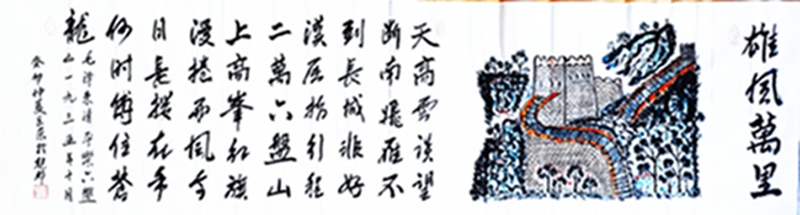 雄风萬里
天高雲淡望
断南飛雁不
到長城非好
漢屈指行程
二萬六盤山
上高峯红旗
漫捲西风今
日長纓在手
何时縛住蒼
龍
毛澤東清平樂六盤
山一九三五年十月
癸卯仲夏